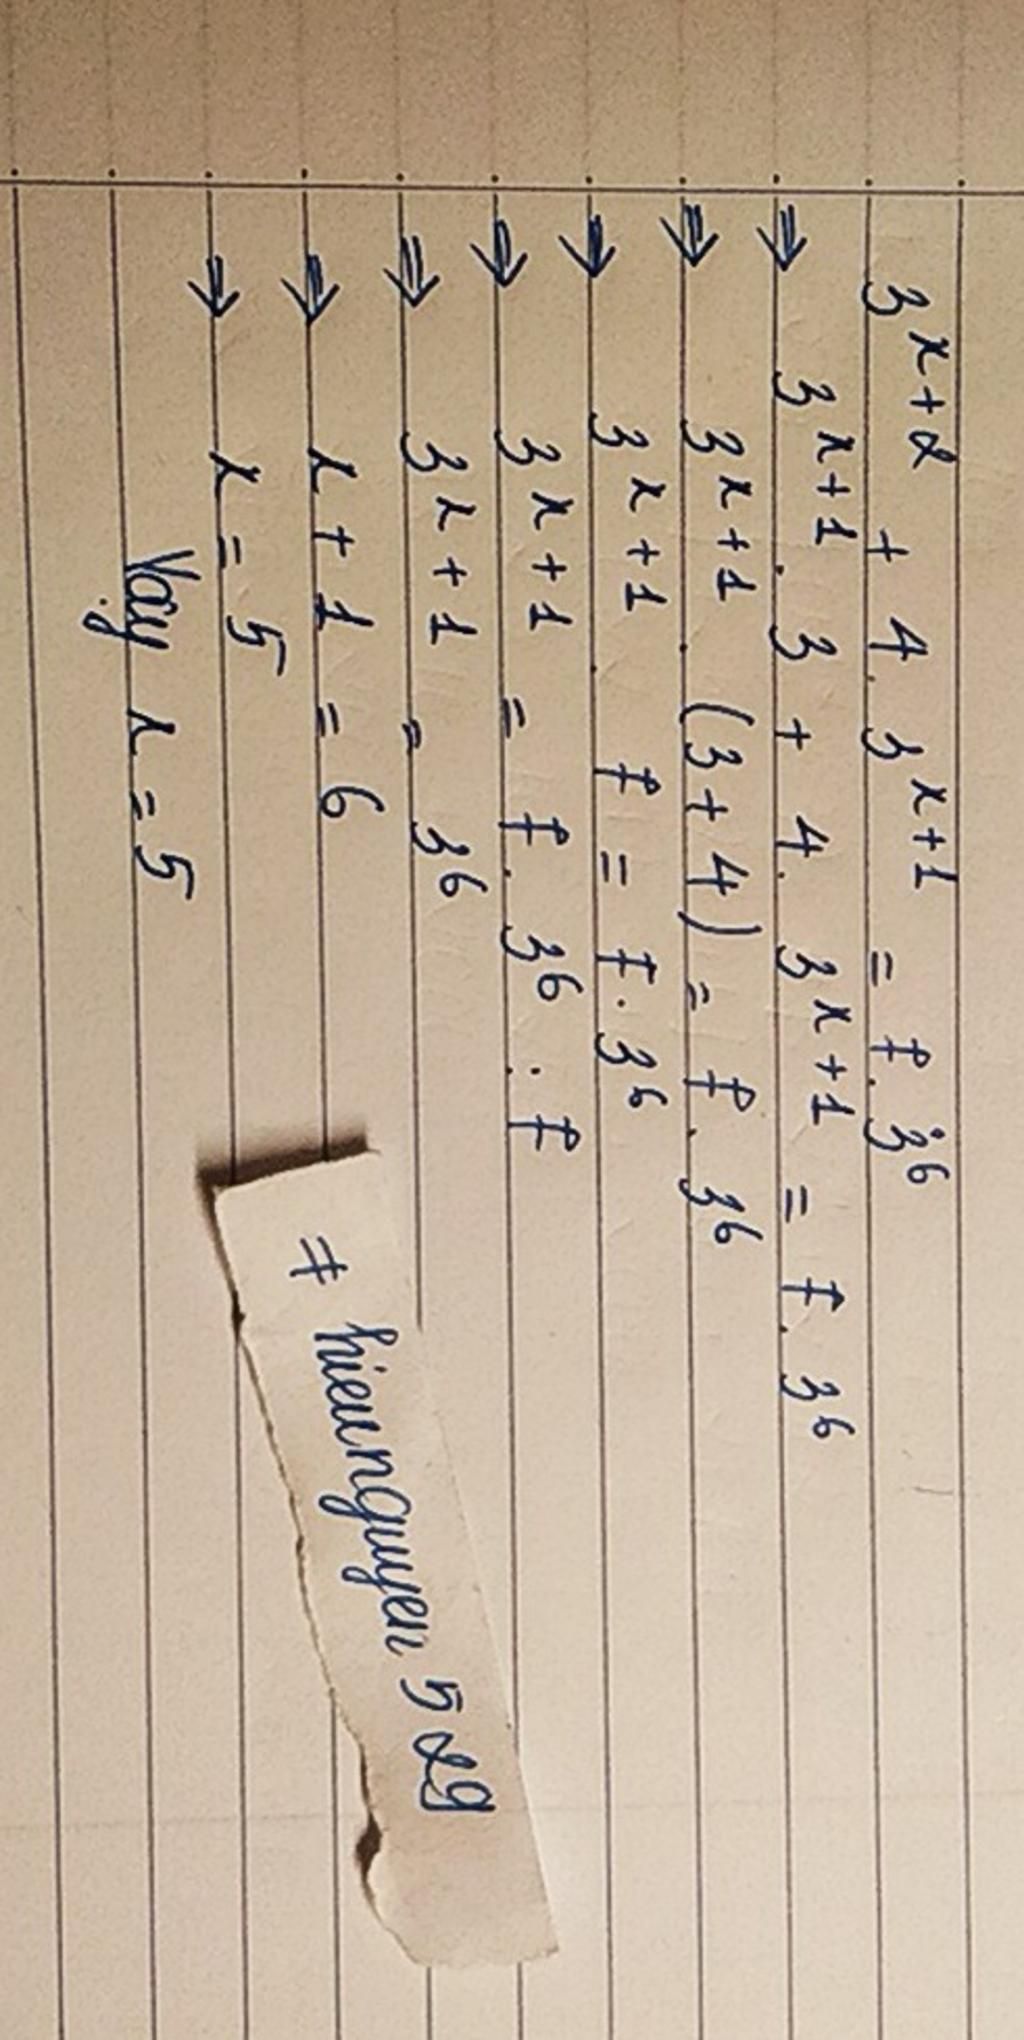 3^{x+2} + 4. 3^{x+1} = 7. 3^6
⇒ 3^{x+1}. 3 + 4. 3^{x+1} = 7. 3^6
⇒ 3^{x+1}. (3+4) = 7. 3^6
⇒ 3^{x+1}. 7 = 7. 3^6
⇒ 3^{x+1} = 7. 3^6 : 7
⇒ 3^{x+1} = 3^6
⇒ x+1 = 6
⇒ x = 5
Vậy x = 5
# hieunguyen 529